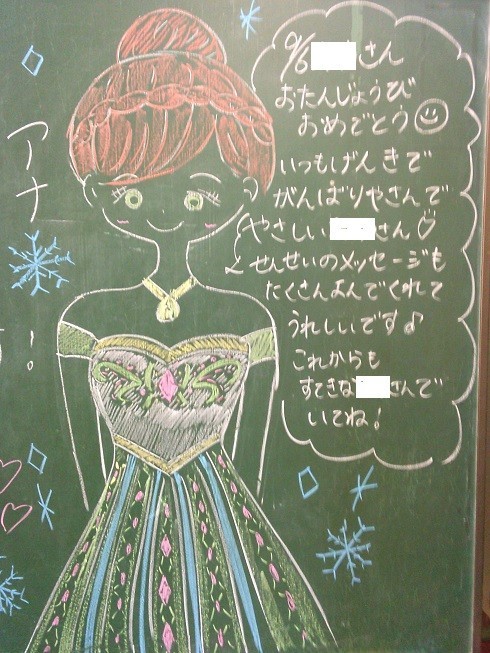 アナ
!
さん
おたんじょうび
おめでとう
いつもげんきで
がんばりやさんで
やさしい さん♡
せんせいのメッセージも
たくさんよんでくれて
うれしいです♪
これからも
すてきな さんで
いてね!